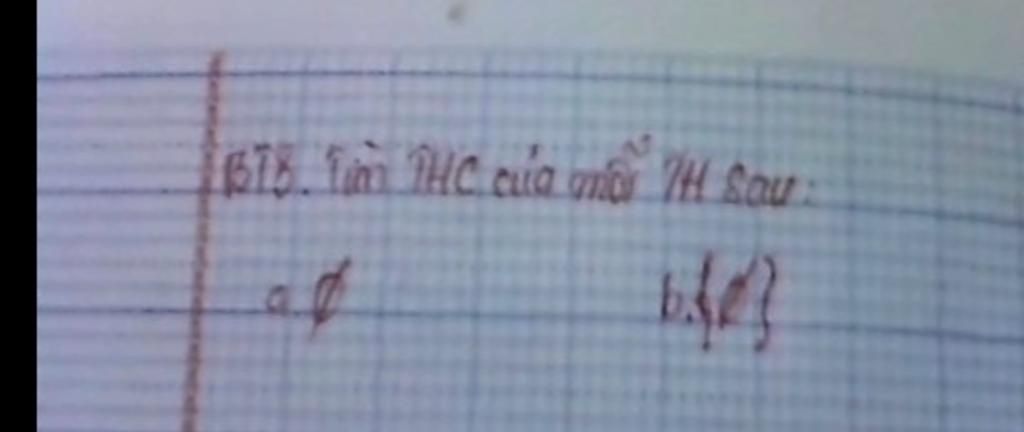 BT8. Tìm THC của mỗi TH sau:
a. ∅ b. {∅}